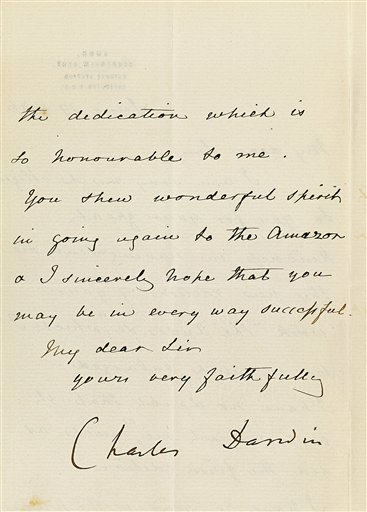 the dedication which is
so honourable to me.
You shew wonderful spirit
in going again to the Amazon
& I sincerely hope that you
may be in every way successful.
My dear Sir
yours very faithfully
Charles Darwin